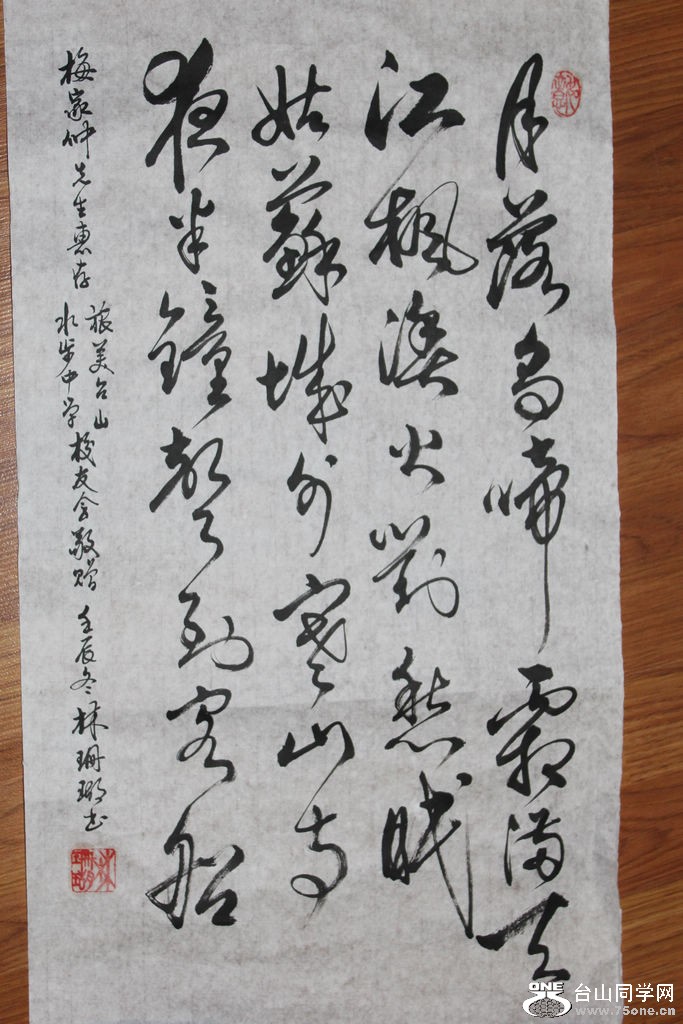 月落烏啼霜满天
江枫渔火對愁眠
姑蘇城外寒山寺
夜半鐘聲到客船
梅家仲先生惠存
旅美台山
水步中学校友会敬赠 壬辰冬 林珊瑚书
ONE
台山同学网
www.75one.cn